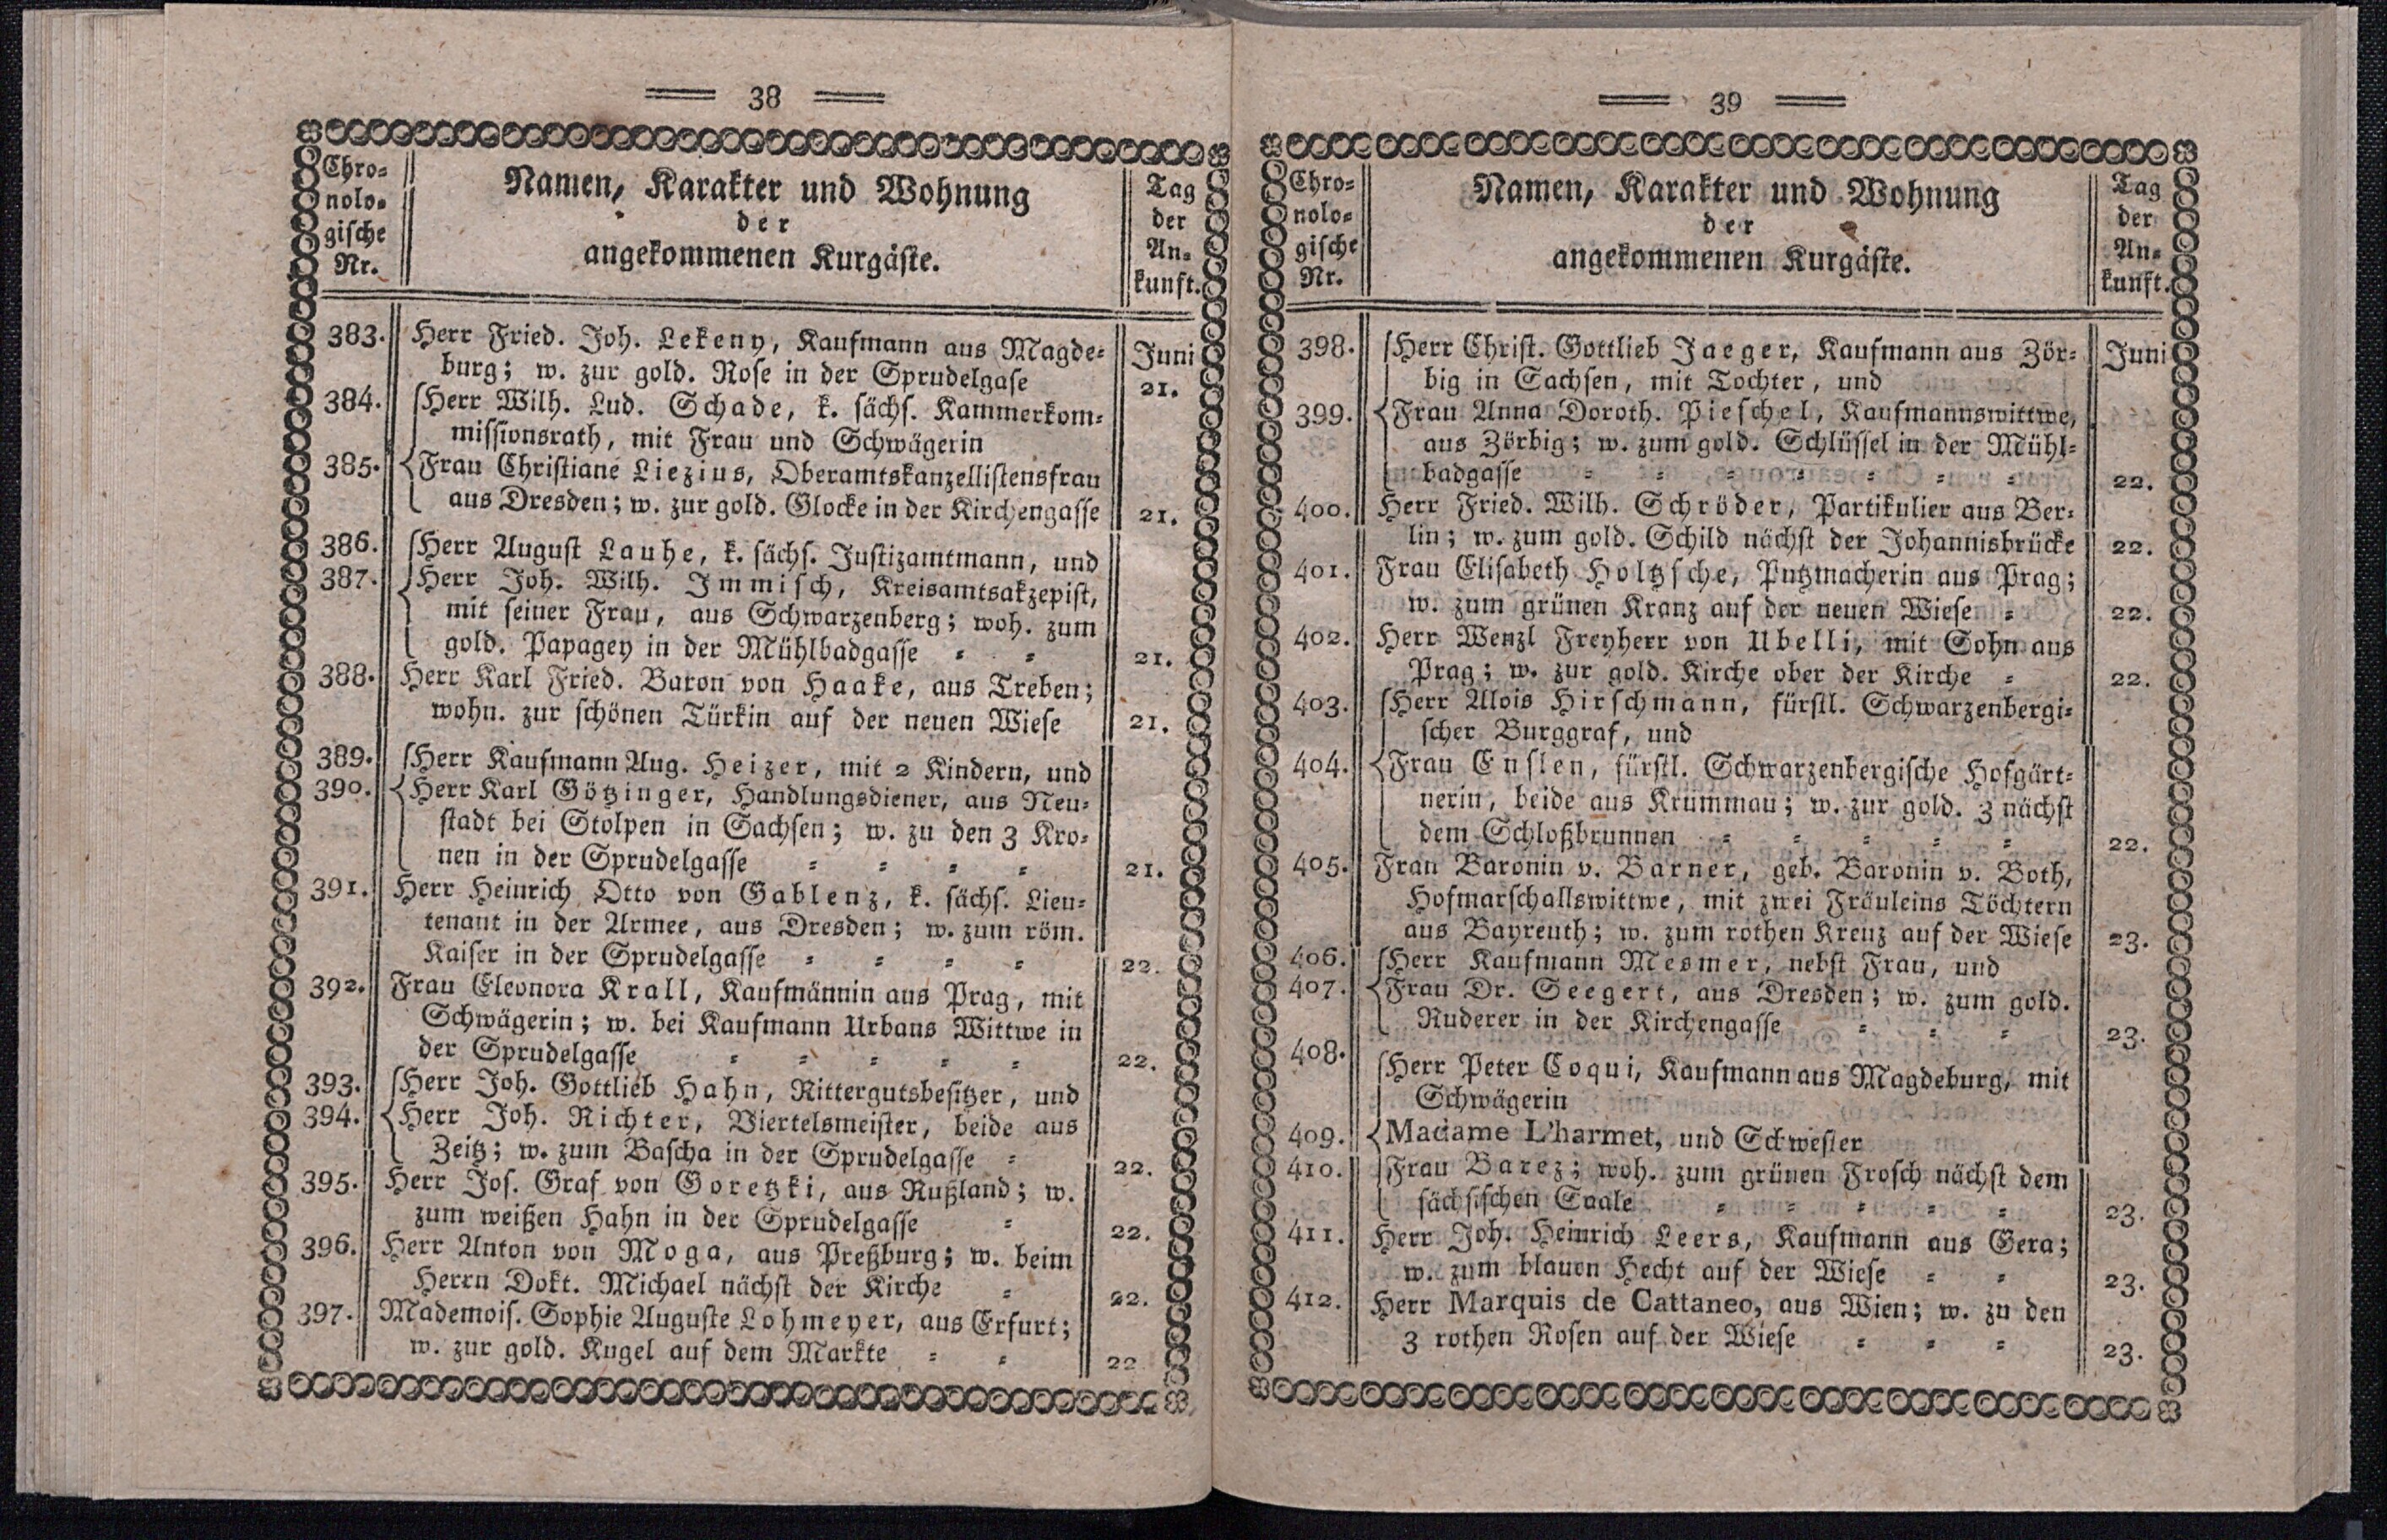 38
Chro-
nolo-
gische
Nr.
Namen, Karakter und Wohnung
der
angekommenen Kurgäste.
Tag
der
An-
kunft.
383. Herr Fried. Joh. Lekeny, Kaufmann aus Magde- Juni
burg; w. zur gold. Rose in der Sprudelgase 21.
384. Herr Wilh. Lud. Schade, k. sächs. Kammerkom-
missionsrath, mit Frau und Schwägerin
385. Frau Christiane Liezius, Oberamtskanzellistensfrau
aus Dresden; w. zur gold. Glocke in der Kirchengasse 21.
386. Herr August Lauhe, k. sächs. Justizamtmann, und
387. Herr Joh. Wilh. Immisch, Kreisamtsakzepist,
mit seiner Frau, aus Schwarzenberg; woh. zum
gold. Papagey in der Mühlbadgasse = = 21.
388. Herr Karl Fried. Baron von Haake, aus Treben;
wohn. zur schönen Türkin auf der neuen Wiese 21.
389. Herr Kaufmann Aug. Heizer, mit 2 Kindern, und
390. Herr Karl Götzinger, Handlungsdiener, aus Neu-
stadt bei Stolpen in Sachsen; w. zu den 3 Kro-
nen in der Sprudelgasse = = = = 21.
391. Herr Heinrich Otto von Gablenz, k. sächs. Lieu-
tenant in der Armee, aus Dresden; w. zum röm.
Kaiser in der Sprudelgasse = = = = 22.
392. Frau Eleonora Krall, Kaufmännin aus Prag, mit
Schwägerin; w. bei Kaufmann Urbans Wittwe in
der Sprudelgasse = = = = = 22.
393. Herr Joh. Gottlieb Hahn, Rittergutsbesitzer, und
394. Herr Joh. Richter, Viertelsmeister, beide aus
Zeitz; w. zum Bascha in der Sprudelgasse = 22.
395. Herr Jos. Graf von Goretzki, aus Rußland; w.
zum weißen Hahn in der Sprudelgasse = 22.
396. Herr Anton von Moga, aus Preßburg; w. beim
Herrn Dokt. Michael nächst der Kirche = 22.
397. Mademois. Sophie Auguste Lohmeyer, aus Erfurt;
w. zur gold. Kugel auf dem Markte = = 22
39
Chro-
nolo-
gische
Nr.
Namen, Karakter und Wohnung
der
angekommenen Kurgäste.
Tag
der
An-
kunft.
398. Herr Christ. Gottlieb Jaeger, Kaufmann aus Zör- Juni
big in Sachsen, mit Tochter, und
399. Frau Anna Doroth. Pieschel, Kaufmannswittwe,
aus Zörbig; w. zum gold. Schlüssel in der Mühl-
badgasse = = = = = = = 22.
400. Herr Fried. Wilh. Schröder, Partikulier aus Ber-
lin; w. zum gold. Schild nächst der Johannisbrücke 22.
401. Frau Elisabeth Holtzsche, Putzmacherin aus Prag;
w. zum grünen Kranz auf der neuen Wiese = 22.
402. Herr Wenzl Freyherr von Ubelli, mit Sohn aus
Prag; w. zur gold. Kirche ober der Kirche = 22.
403. Herr Alois Hirschmann, fürstl. Schwarzenbergi-
scher Burggraf, und
404. Frau Enslen, fürstl. Schwarzenbergische Hofgärt-
nerin, beide aus Krummau; w. zur gold. 3 nächst
dem Schloßbrunnen = = = = = 22.
405. Frau Baronin v. Barner, geb. Baronin v. Both,
Hofmarschallswittwe, mit zwei Fräuleins Töchtern
aus Bayreuth; w. zum rothen Kreuz auf der Wiese 23.
406. Herr Kaufmann Mesmer, nebst Frau, und
407. Frau Dr. Seegert, aus Dresden; w. zum gold.
Ruderer in der Kirchengasse = = = 23.
408. Herr Peter Coqui, Kaufmann aus Magdeburg, mit
Schwägerin
409. Madame L'harmet, und Schwester
410. Frau Barez; woh. zum grünen Frosch nächst dem
sächsischen Saale = = = = = 23.
411. Herr Joh. Heinrich Leers, Kaufmann aus Gera;
w. zum blauen Hecht auf der Wiese = = 23.
412. Herr Marquis de Cattaneo, aus Wien; w. zu den
3 rothen Rosen auf der Wiese = = = 23.